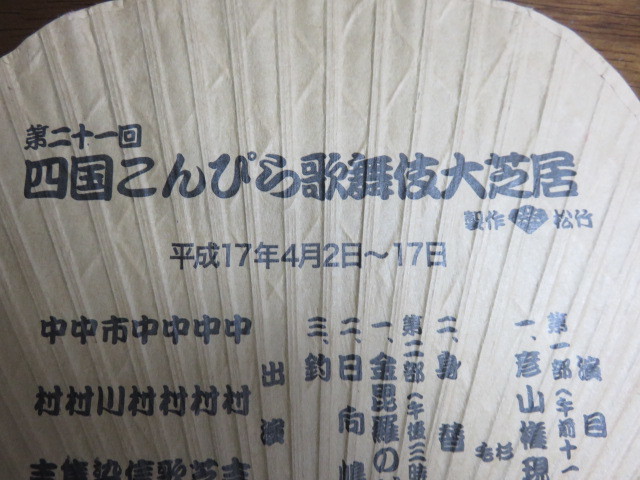 第二十一回
四国こんぴら歌舞伎大芝居
製作 松竹
平成17年4月2日～17日
演目
第一部(午前十一
一、彦山権現
毛
杉
二、身替
第二部(午後三時
一、金毘羅の
二、日向嶋
三、釣
出演
中村
中村芝
中村歌
中村信
市川染
中村
中村